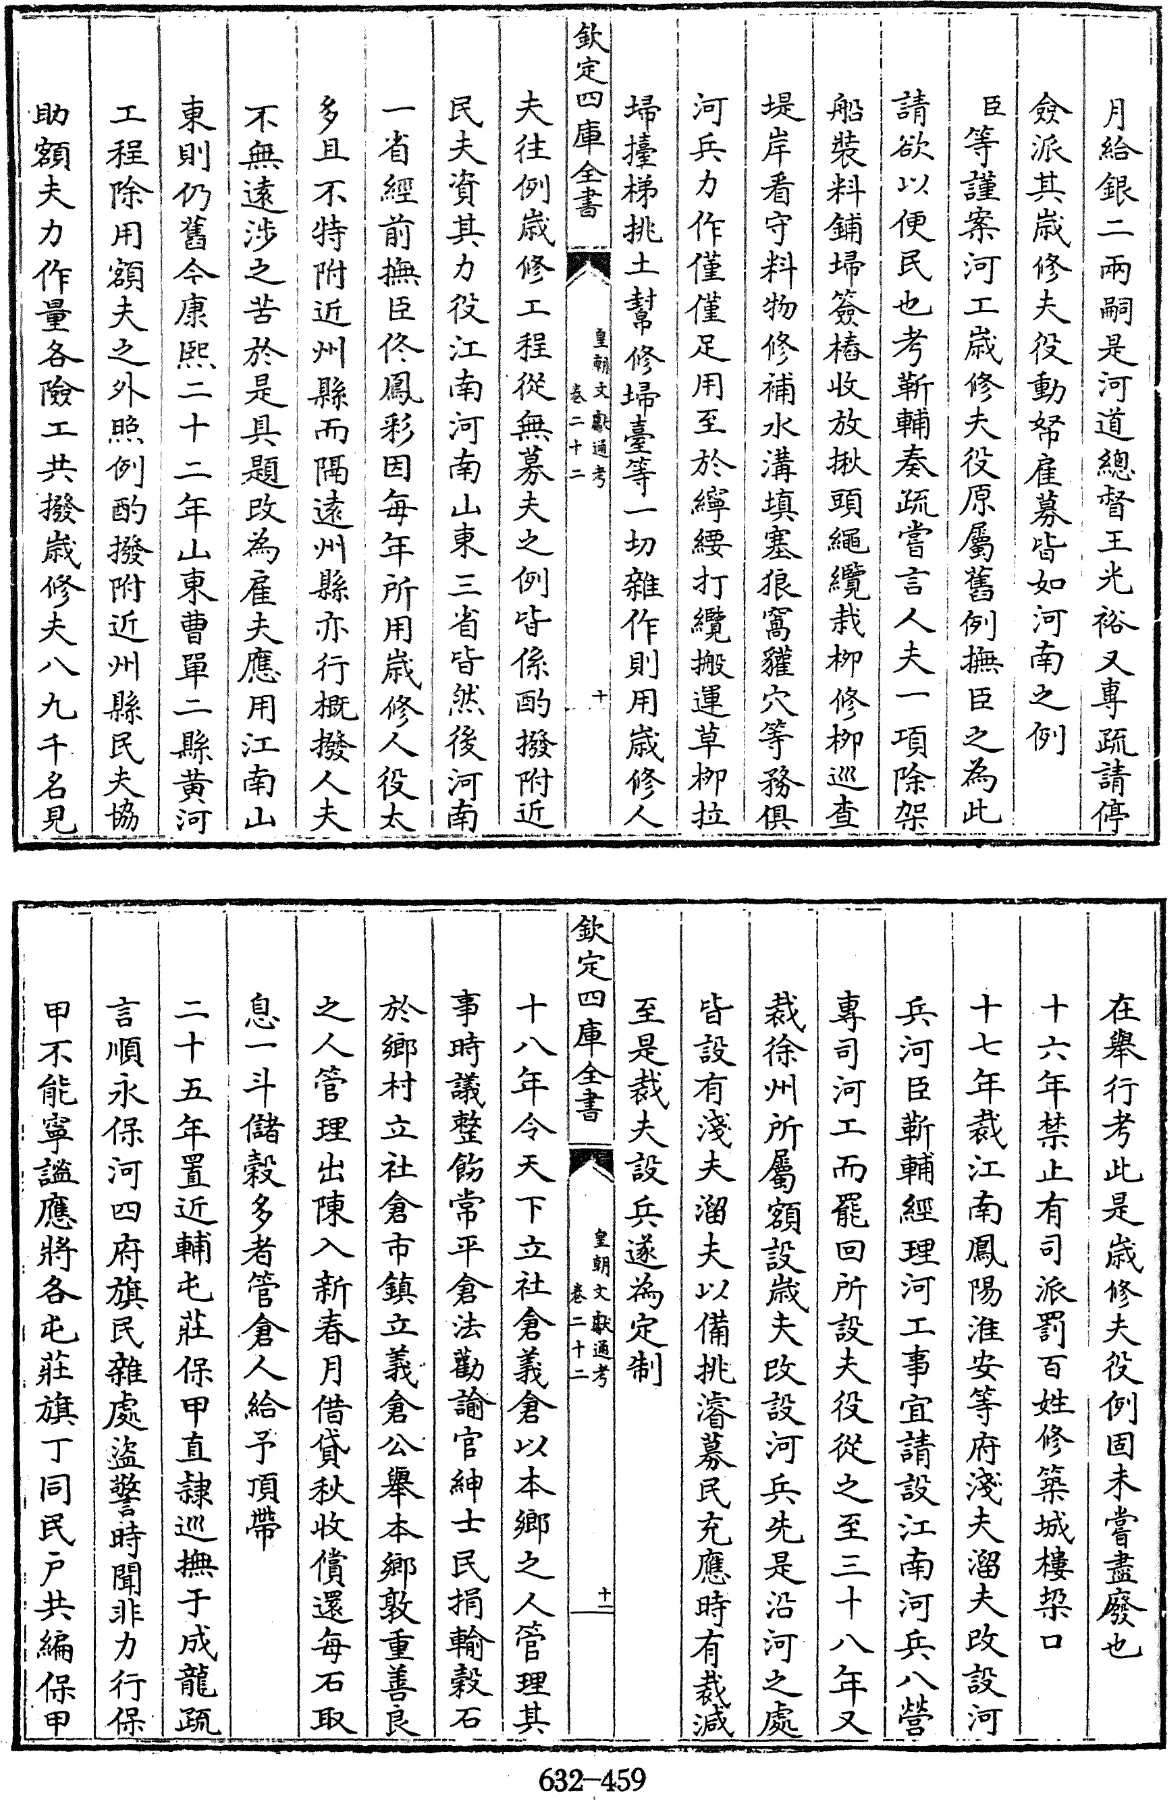 月給銀二兩嗣是河道總督王光裕又專疏請停
僉派其歲修夫役動帑雇募皆如河南之例
臣等謹案河工歲修夫役原屬舊例撫臣之為此
請欲以便民也考靳輔奏疏嘗言人夫一項除架
船裝料鋪埽簽樁收放揪頭繩纜栽柳修柳巡查
堤岸看守料物修補水溝填塞狼窩貛穴等務俱
河兵力作僅僅足用至於縴䌁打纜搬運草柳拉
埽擡梯挑土幫修埽臺等一切雜作則用歲修人
欽定四庫全書
皇朝文獻通考
卷二十二
十
夫往例歲修工程從無募夫之例皆係酌撥附近
民夫資其力役江南河南山東三省皆然後河南
一省經前撫臣佟鳳彩因每年所用歲修人役太
多且不特附近州縣而隔遠州縣亦行概撥人夫
不無遠涉之苦於是具題改為雇夫應用江南山
東則仍舊今康熙二十二年山東曹單二縣黃河
工程除用額夫之外照例酌撥附近州縣民夫協
助額夫力作量各險工共撥歲修夫八九千名見
在舉行考此是歲修夫役例固未嘗盡廢也
十六年禁止有司派罰百姓修築城樓垜口
十七年裁江南鳳陽淮安等府淺夫溜夫改設河
兵河臣靳輔經理河工事宜請設江南河兵八營
專司河工而罷回所設夫役從之至三十八年又
裁徐州所屬額設歲夫改設河兵先是沿河之處
皆設有淺夫溜夫以備挑濬募民充應時有裁減
至是裁夫設兵遂為定制
欽定四庫全書
皇朝文獻通考
卷二十二
十一
十八年令天下立社倉義倉以本鄉之人管理其
事時議整飭常平倉法勸諭官紳士民捐輸穀石
於鄉村立社倉市鎮立義倉公舉本鄉敦重善良
之人管理出陳入新春月借貸秋收償還每石取
息一斗儲穀多者管倉人給予頂帶
二十五年置近輔屯莊保甲直隸巡撫于成龍疏
言順永保河四府旗民雜處盜警時聞非力行保
甲不能寧謐應將各屯莊旗丁同民戶共編保甲
632-459